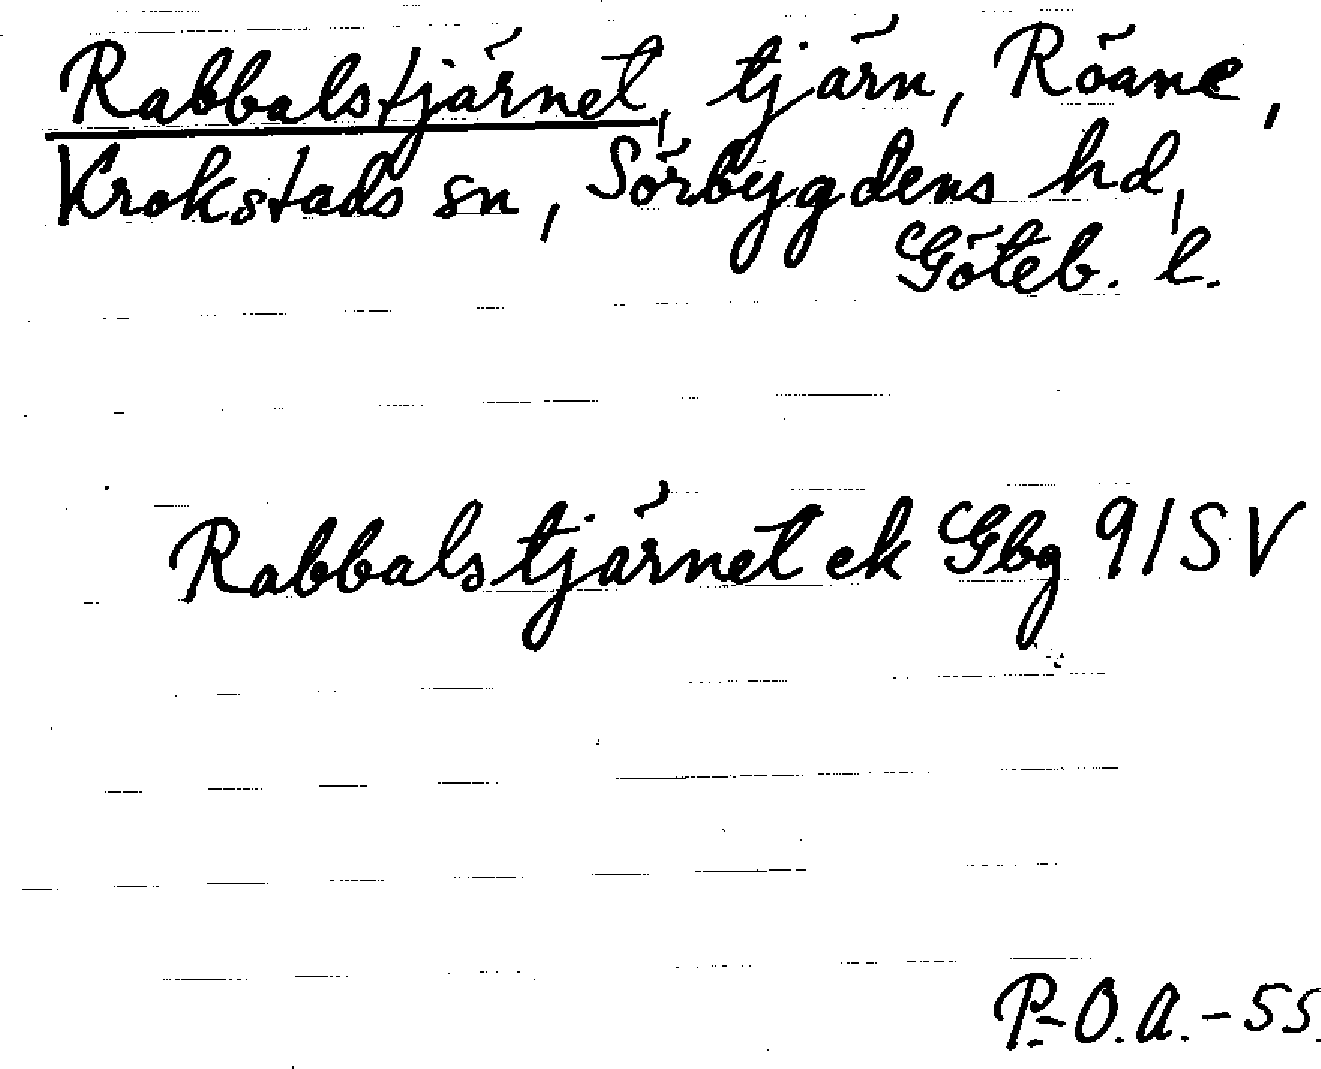 Rabbalstjärnet, tjärn, Röane,
Krokstads sn, Sörbygdens hd,
Göteb. l.
Rabbalstjärnet ek Gbg 91SV
P.-O.A.-55.